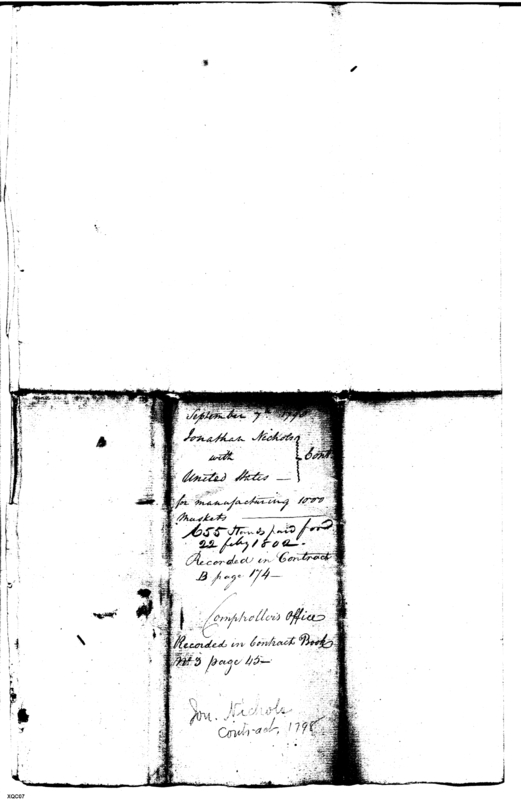 September 7th 1798
Jonathan Nichols
with } Cont
United States —
for manufacturing 1000
Muskets
655 Stands paid for
22 feby 1802.
Recorded in Contract
B page 174 —
Comptrollers Office
Recorded in Contract Book
No 3 page 45 —
Jon. Nichols
Contract, 1798
XQC07